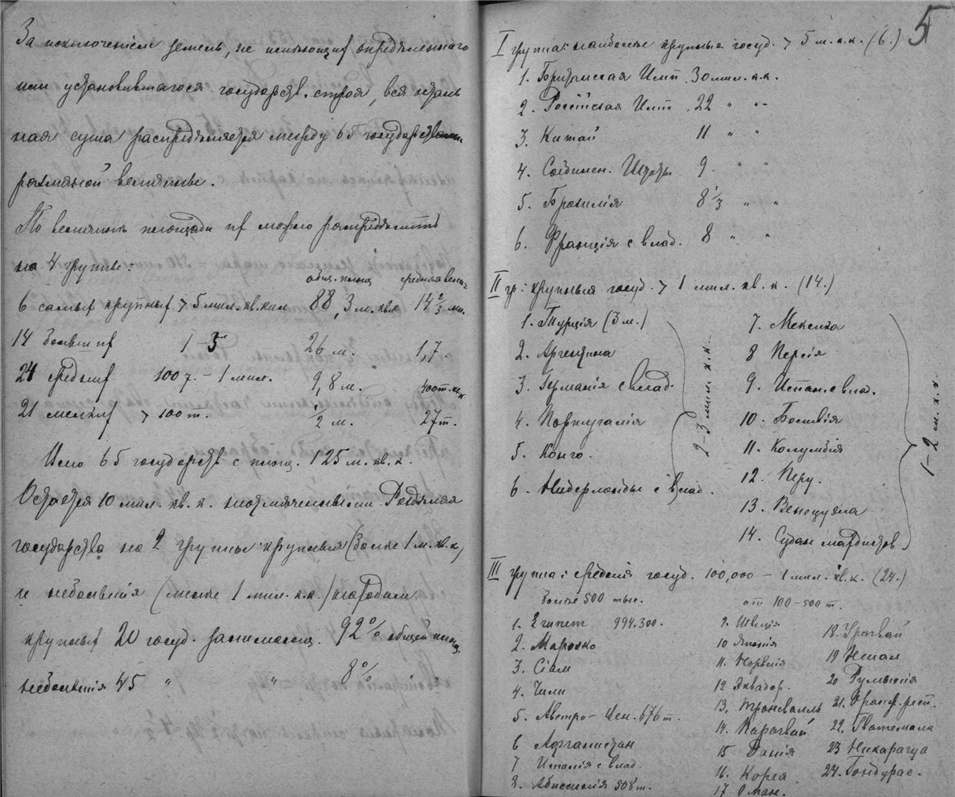 За исключеніем земель, не имѣющихъ опредѣленнаго
или установившагося государств. строя, вся осталь
ная суша распредѣляется между 65 государствами
различной величины.
По величинѣ площади ихъ можно распредѣлить
на 4 группы:
общ. площ. средняя велич.
6 самыхъ крупныхъ > 5 мил. кв. кил 88,3 м. кв. 14 2/3 м.
14 большихъ 1-5 26 м. 1,7
24 среднихъ 100 т. - 1 мил. 9,8 м. 400 т.
21 мелкихъ > 100 т. 1/2 м. 27 т.
Итого 65 государствъ с площ. 125 м. кв. к.
Остается 10 мил. кв. к. Раздѣляя
государства на 2 группы: крупныя (болѣе 1 м. кв. к,
и небольшія (менѣе 1 мил. к. к.)
крупныхъ 20 госуд. 92% общей площ.
небольшія 45 " " 8% "
5
I группа: наиболѣе крупныя госуд. > 5 м. к. к. (6.)
1. Британская Имп. 30 мил. к. к.
2. Россійская Имп. 22 " "
3. Китай 11 " "
4. Соединен. Штаты 9 " "
5. Бразилія 8 1/3 " "
6. Франція с влад. 8 " "
II гр: крупныя госуд. > 1 мил. кв. к. (14.)
1. Турція (3 м.)
2. Аргентина
3. Германія с влад.
4. Португалія
5. Конго.
6. Нидерланды с влад.
2-3 мил. к. к.
7. Мексика
8 Персія
9. Испан. с влад.
10. Боливія
11. Колумбія
12. Перу.
13. Венецуэла
14. Судан махдистов
1-2 м. к. к.
III группа: среднія госуд. 100,000 - 1 мил. кв. к. (24.)
болѣе 500 тыс.
1. Египет 994.300.
2. Марокко
3. Сіам
4. Чили
5. Австро-Вен. 676 т.
6 Афганистан
7 Италія с влад.
8. Абиссинія 508 т.
от 100-500 т.
9. Швеція
10 Японія
11. Норвегія
12 Эквадор.
13. Трансвааль
14. Парагвай
15 Данія
16. Корея
17 Оман.
18. Уругвай
19 Непал
20 Румынія
21. Оранж. респ.
22. Гватемала
23 Никарагуа
24. Гондурас.